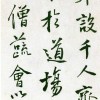 設千人齋
於道場
僧蔬會以